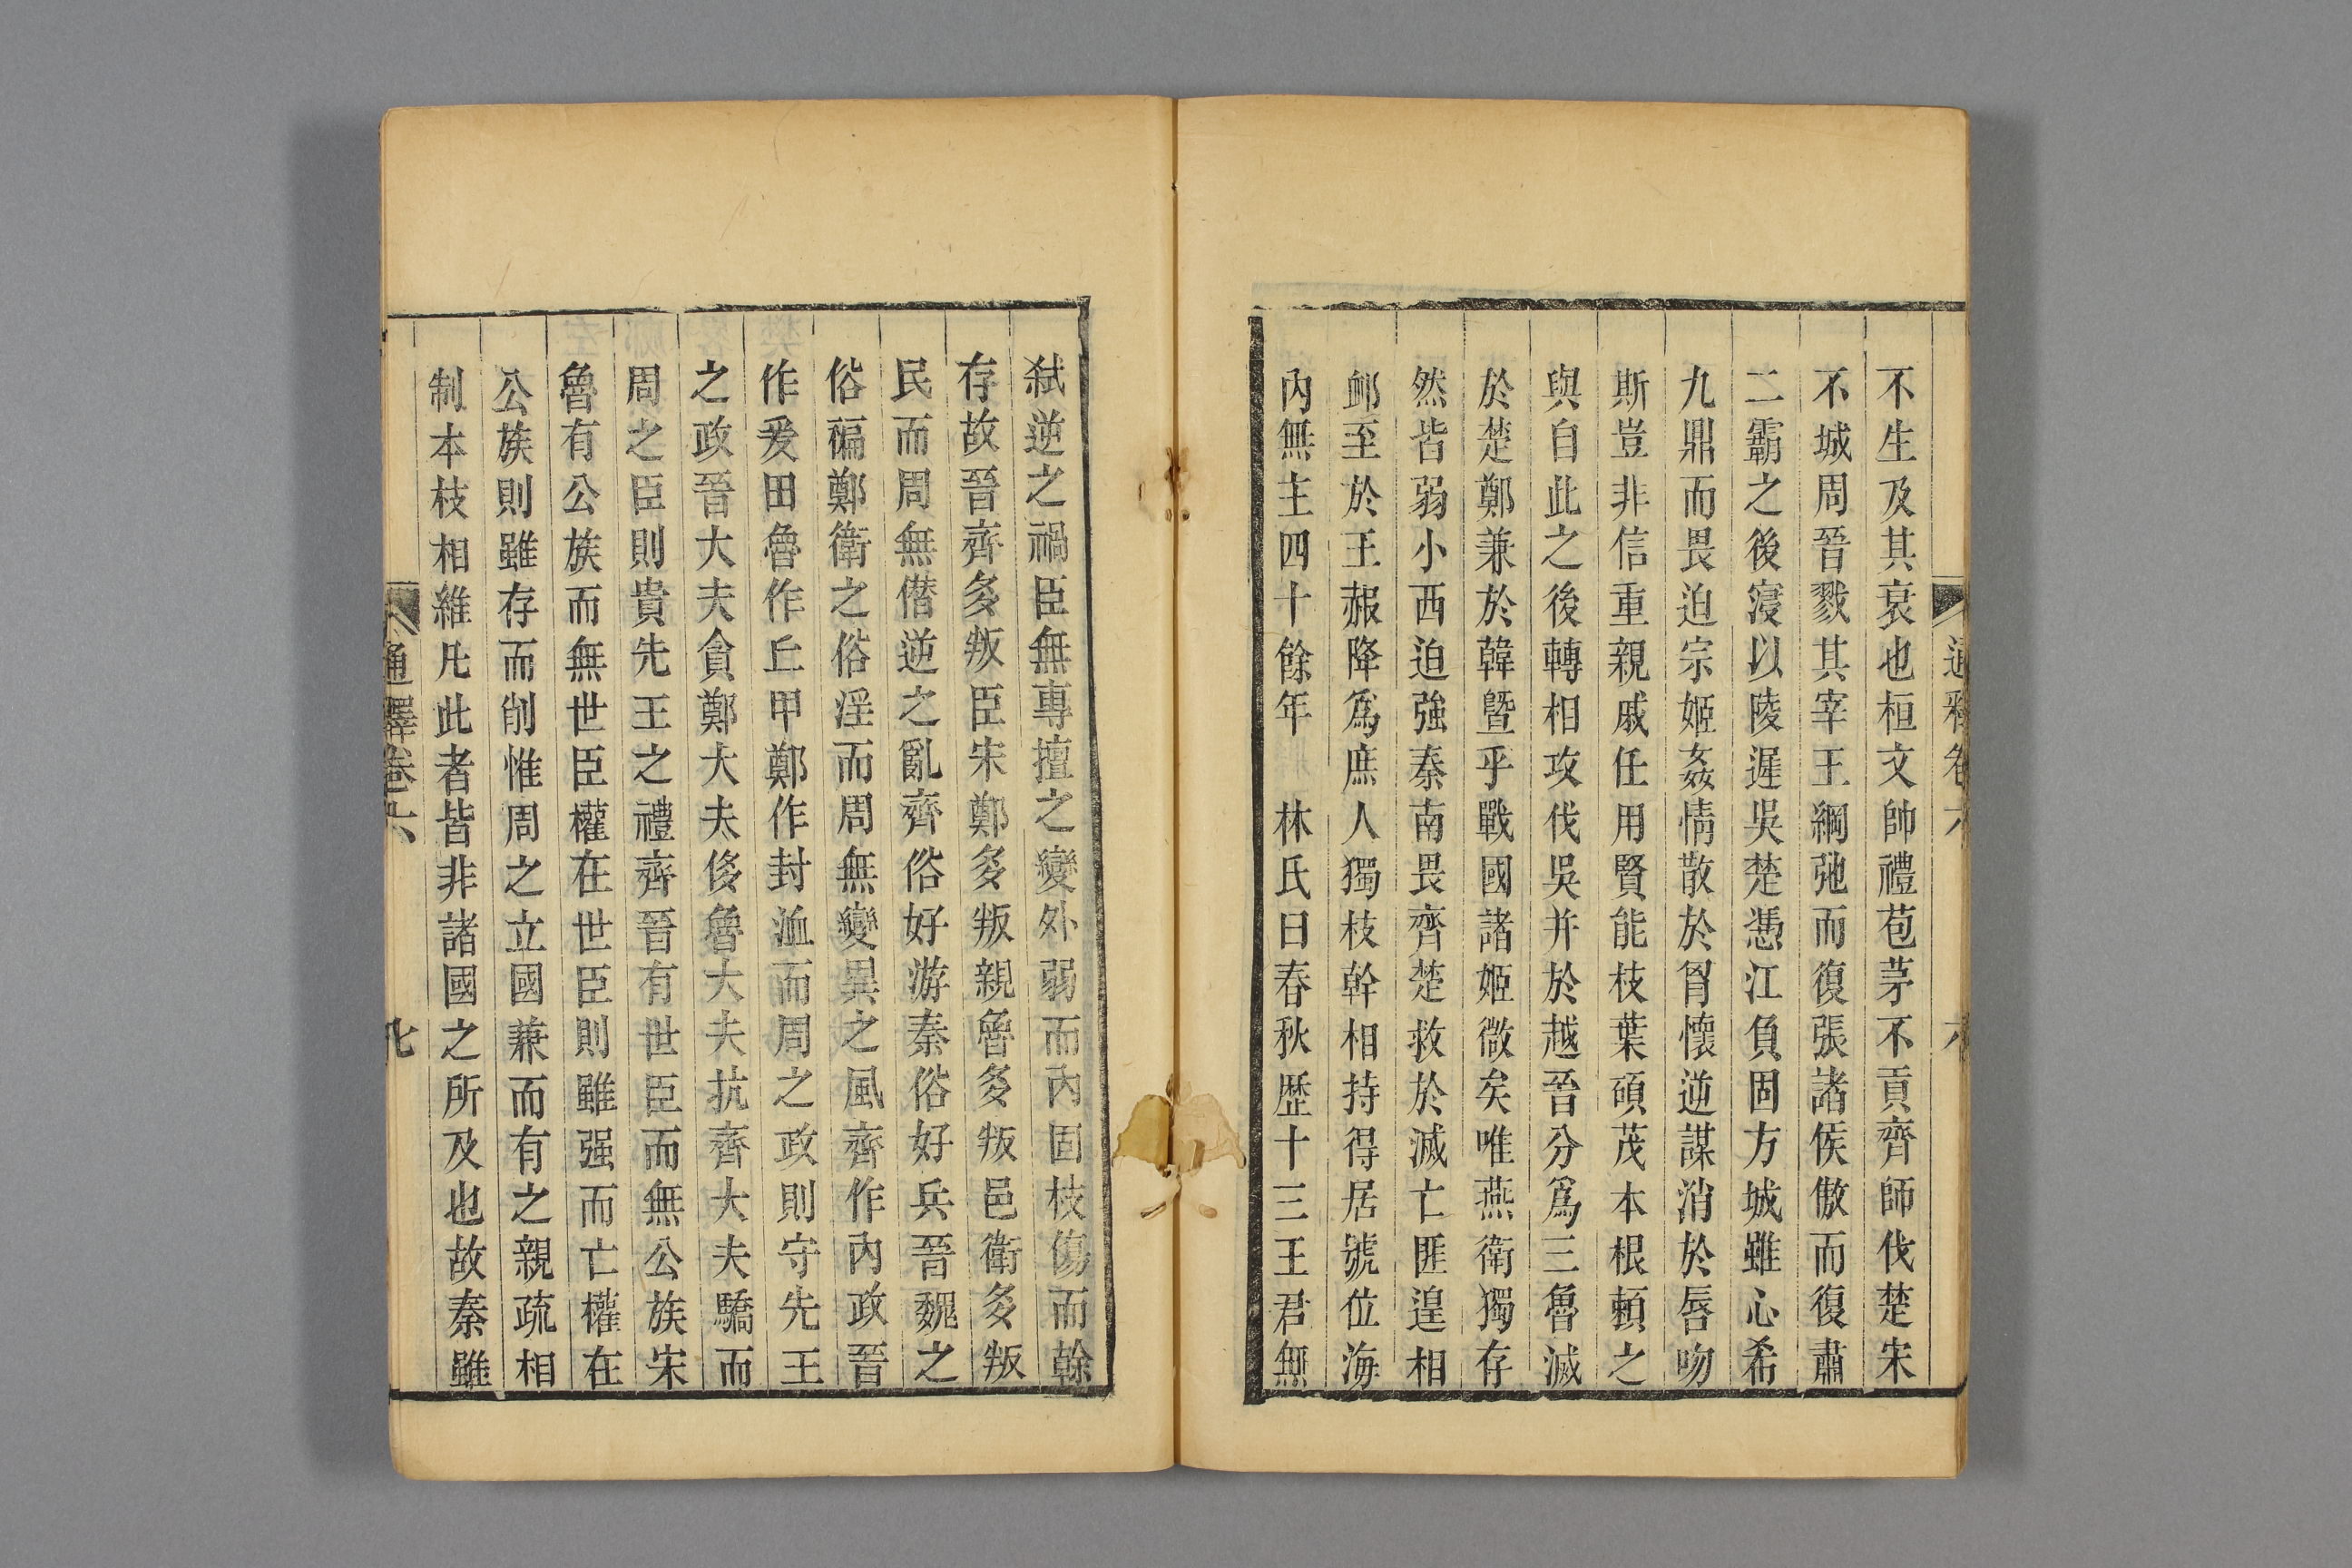 通釋卷六 六
不生及其衰也桓文帥禮苞茅不貢齊師伐楚宋
不城周晉戮其宰王綱弛而復張諸侯傲而復肅
二霸之後寖以陵遲吳楚憑江負固方城雖心希
九鼎而畏迫宗姬姦情散於胷懷逆謀消於唇吻
斯豈非信重親戚任用賢能枝葉碩茂本根賴之
與自此之後轉相攻伐吳并於越晉分爲三魯滅
於楚鄭兼於韓曁乎戰國諸姬微矣唯燕衛獨存
然皆弱小西迫強秦南畏齊楚救於滅亡匪遑相
䘏至於王赧降爲庶人獨枝幹相持得居號位海
內無主四十餘年 林氏曰春秋歷十三王君無
弑逆之禍臣無專擅之變外弱而內固枝傷而幹
存故晉齊多叛臣宋鄭多叛親魯多叛邑衛多叛
民而周無僭逆之亂齊俗好游秦俗好兵晉魏之
俗褊鄭衛之俗淫而周無變異之風齊作內政晉
作爰田魯作丘甲鄭作封洫而周之政則守先王
之政晉大夫貪鄭大夫侈魯大夫抗齊大夫驕而
周之臣則貴先王之禮齊晉有世臣而無公族宋
魯有公族而無世臣權在世臣則雖强而亡權在
公族則雖存而削惟周之立國兼而有之親疏相
制本枝相維凡此者皆非諸國之所及也故秦雖
通釋卷六 七